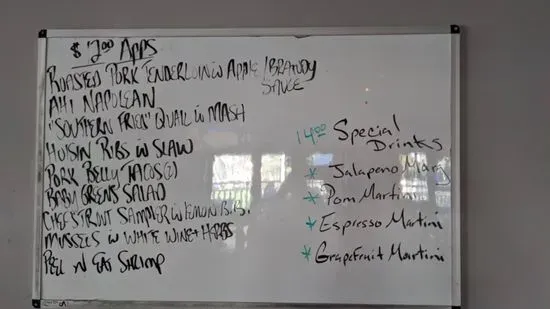 $ 12.00 Apps
ROASTED PORK TENDERLOIN w APPLE/BRANDY
SAUCE
AHI NAPOLEAN
"SOUTHERN FRIED" QUAIL w MASH
HOISIN RIBS w SLAW
PORK BELLY TACOS (2)
BABY GREENS SALAD
SAMPLER w LEMON
MUSSELS w WHITE WINE + HERBS
PEEL N EAT SHRIMP
14.00 Special
Drinks
* Jalapeno Marg
* Pom Martini
* Espresso Martini
* Grapefruit Martini